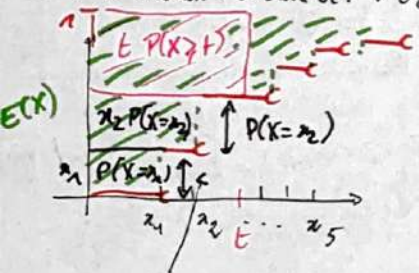 1
t P(X≥t)
E(X)
x₂ P(X=x₂)
P(X=x₂)
x₁ P(X=x₁)
x₁ x₂ ... x₅
t